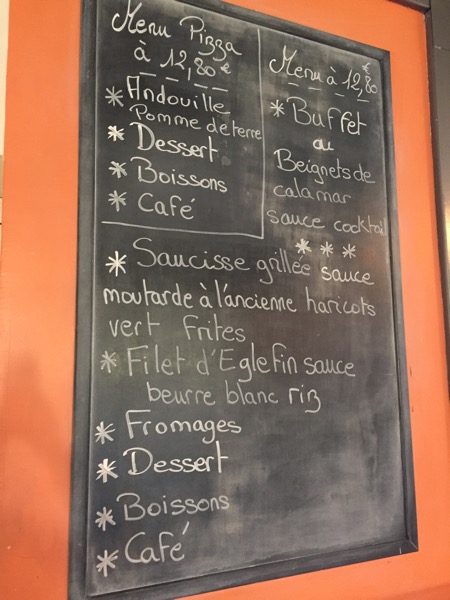 Menu Pizza
à 12,80€
* Andouille
Pomme de terre
* Dessert
* Boissons
* Café
Menu à 12,80€
* Buffet
ou
Beignets de
calamar
sauce cocktail
* * *
* Saucisse grillée sauce
moutarde à l'ancienne haricots
vert frites
* Filet d'Eglefin sauce
beurre blanc riz
* Fromages
* Dessert
* Boissons
* Café